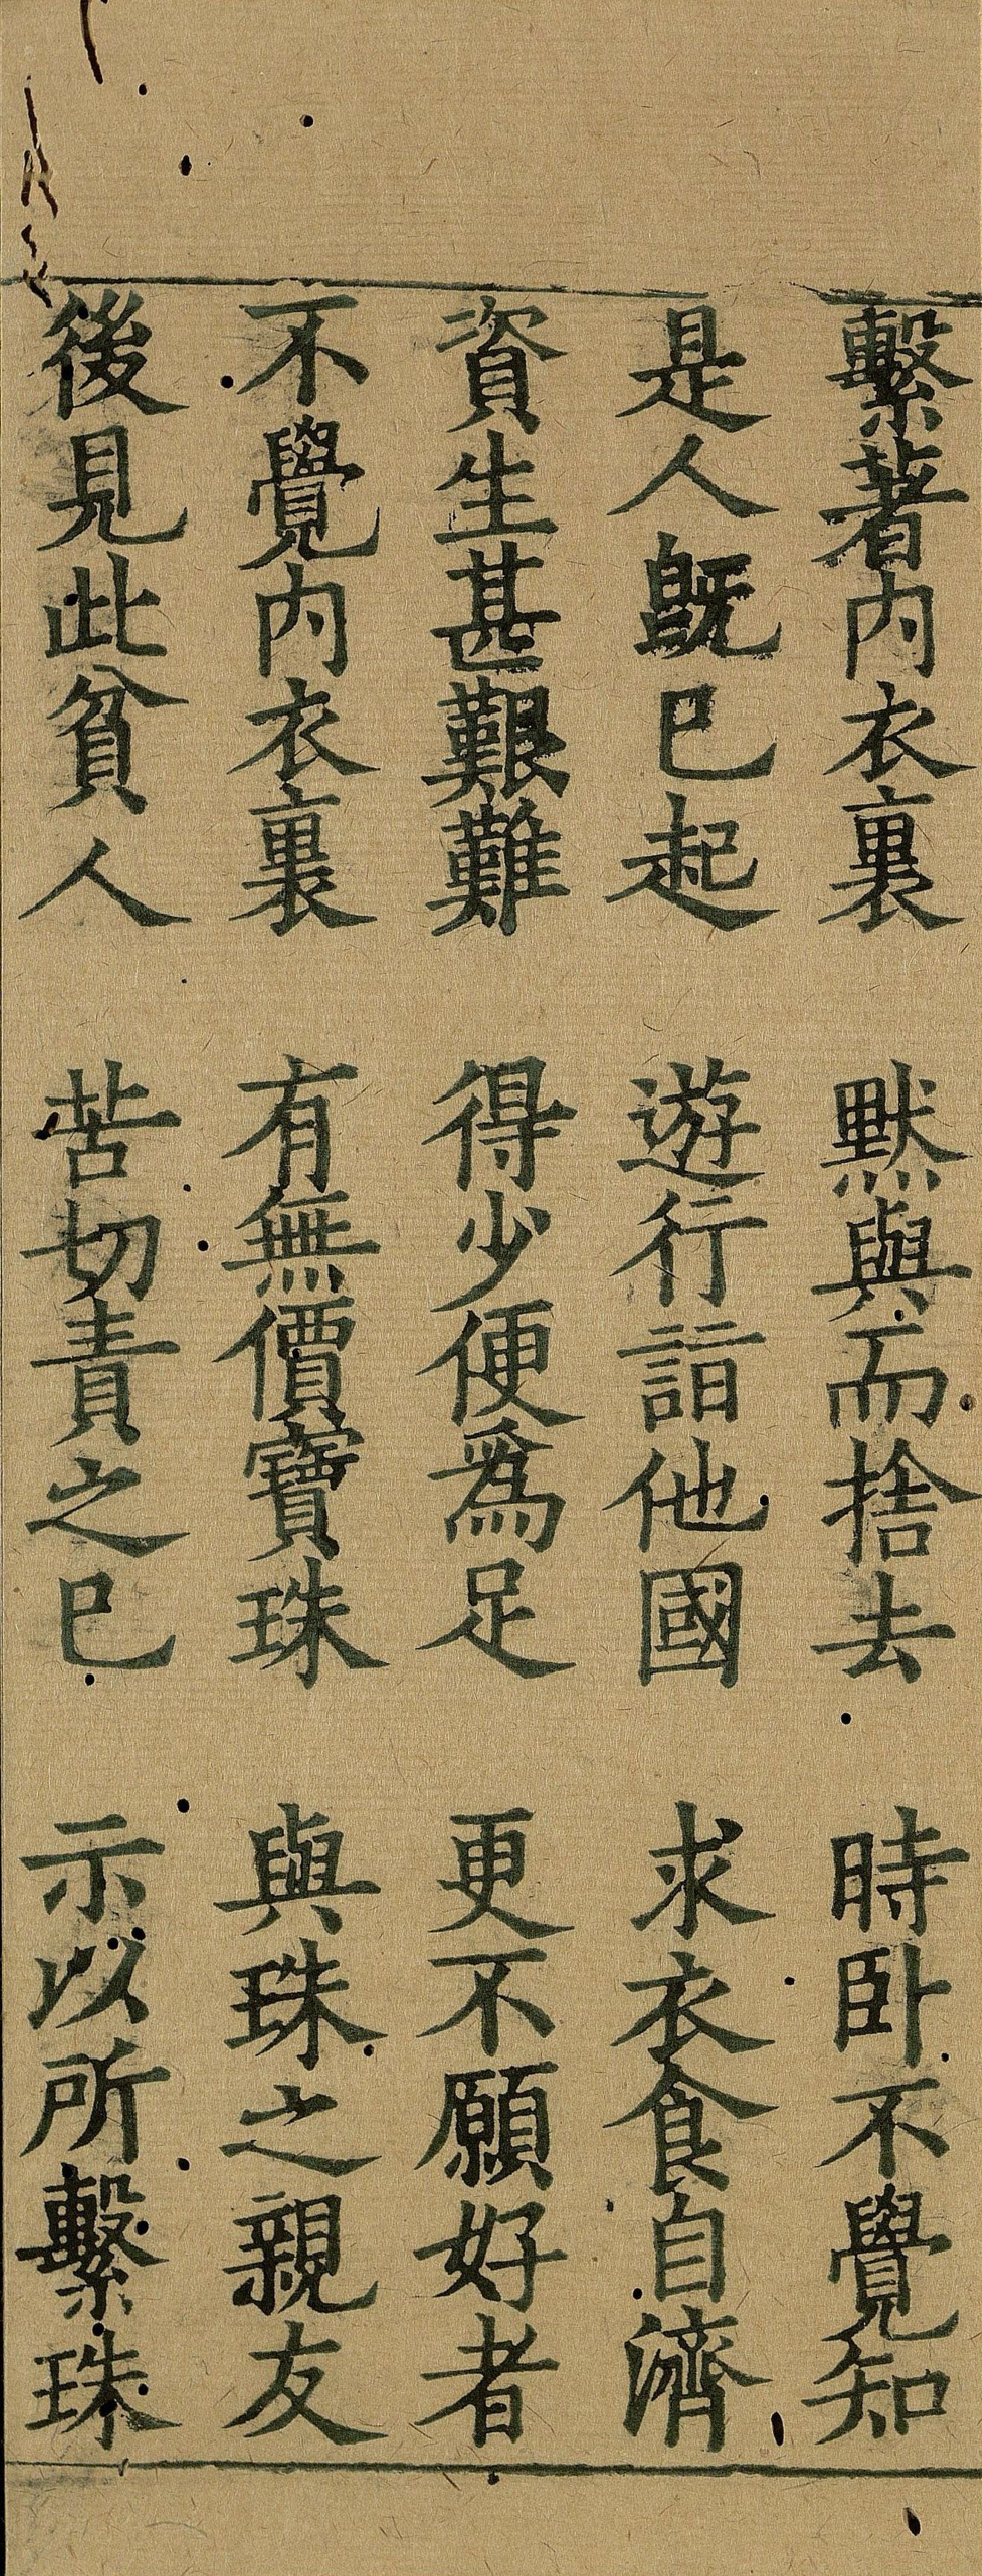 繫著内衣裏　默與而捨去　時卧不覺知
是人旣巳起　遊行詣他國　求衣食自濟
資生甚艱難　得少便爲足　更不願好者
不覺内衣裏　有無價寶珠　與珠之親友
後見此貧人　苦切責之巳　示以所繫珠